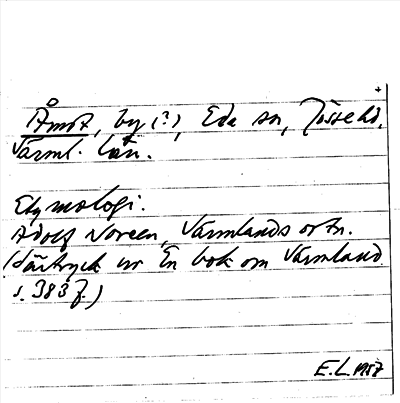 Åmot, by (?), Eda sn, Jösse hd,
Värml. län.
Etymologi.
Adolf Noreen, Värmlands ortn.
(Särtryck ur En bok om Värmland
s. 383 f.)
E.L. 1957